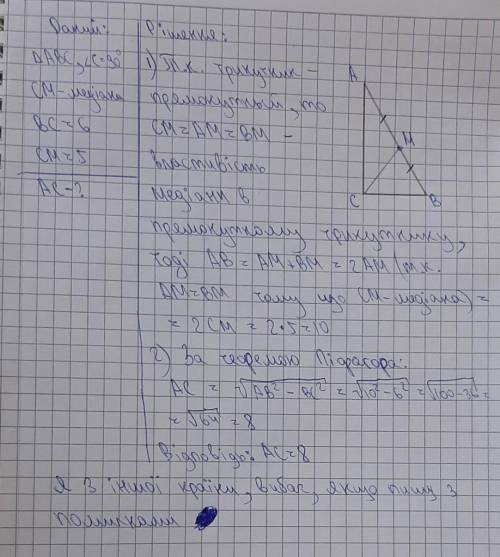 Даний:
ΔABC, ∠C=90°
CM-медіана
BC=6
CM=5
AC-?
Рішення:
1) Т.к. трикутник -
прямокутный, то
CM=AM=BM -
властивість
медіани в
прямокутному трикутнику,
тоді AB=AM+BM=2AM (т.к.
AM=BM тому що CM-медіана)=
=2CM=2•5=10
2) За теоремою Піфагора:
AC=√AB²-BC²=√10²-6²=√100-36=
=√64=8
Відповідь: AC=8
Я з іншої країни, вибач, якщо пишу з
помилками
A
M
C
B